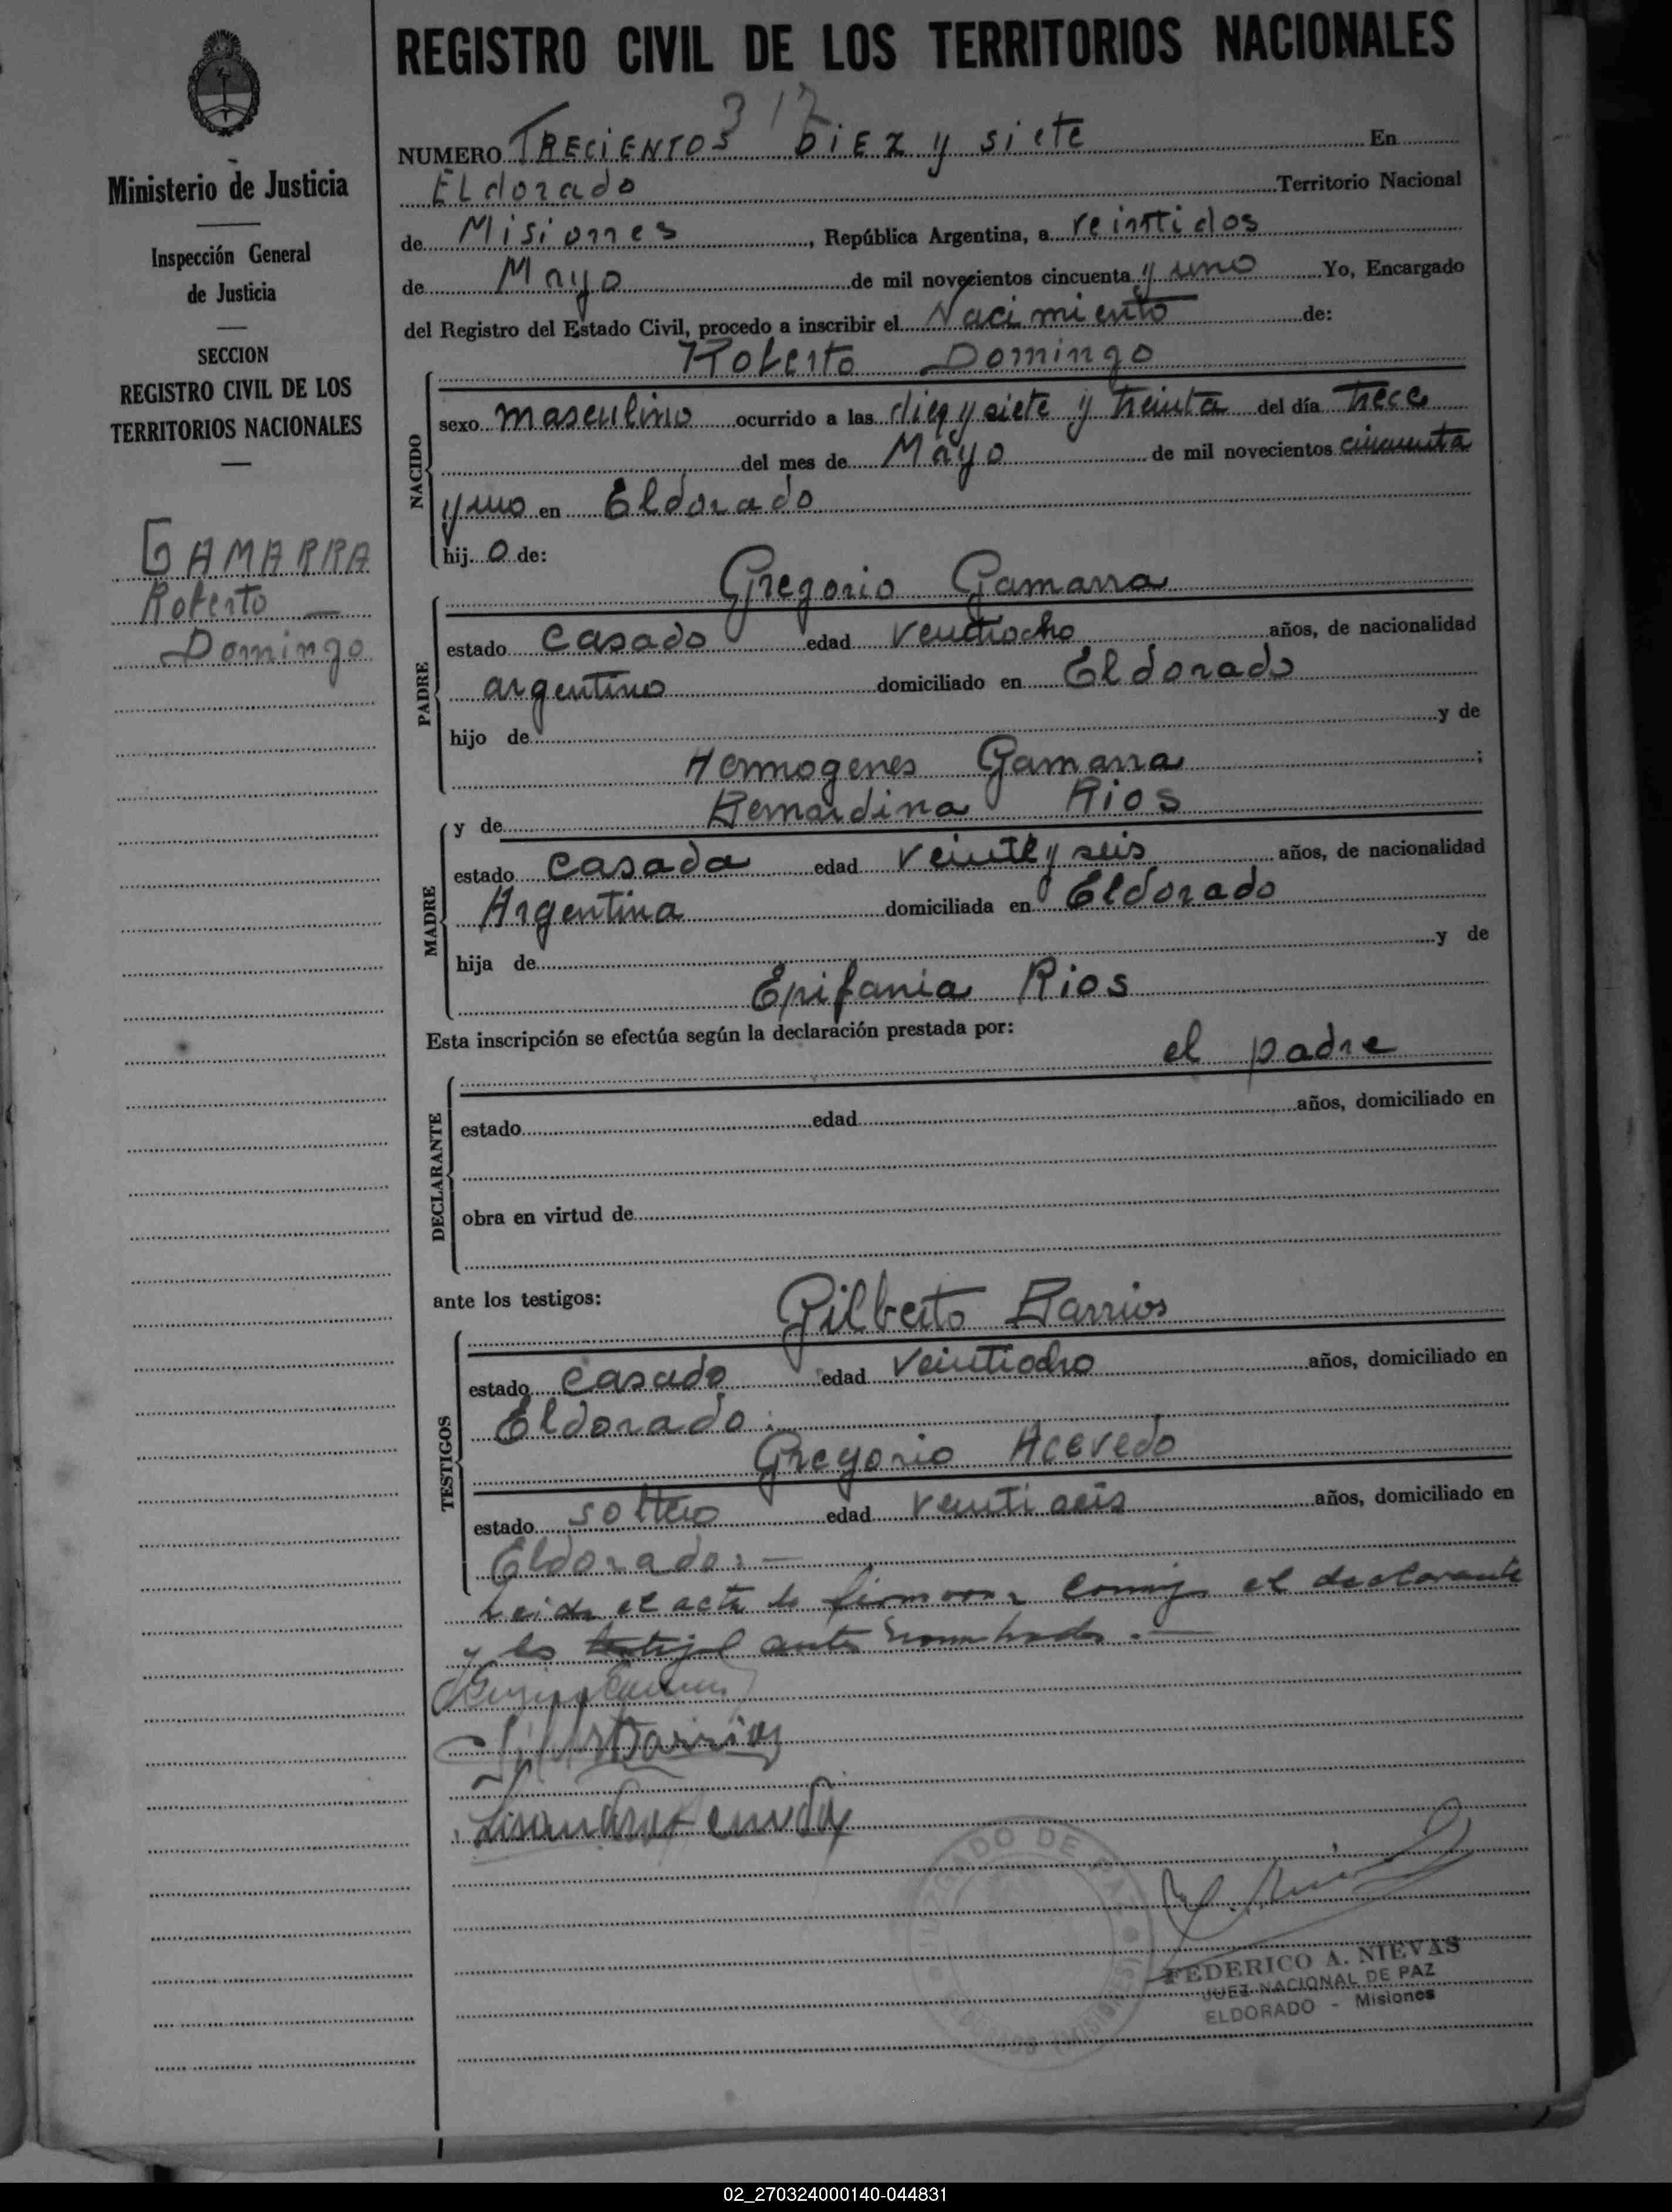 REGISTRO CIVIL DE LOS TERRITORIOS NACIONALES
Ministerio de Justicia
Inspección General
de Justicia
SECCION
REGISTRO CIVIL DE LOS
TERRITORIOS NACIONALES
GAMARRA
Roberto
Domingo
317
NUMERO TRECIENTOS DIEZ y siete En
ELdorado Territorio Nacional
de Misiones, República Argentina, a veintidos
de Mayo de mil novecientos cincuenta y uno Yo, Encargado
del Registro del Estado Civil, procedo a inscribir el Nacimiento de:
Roberto Domingo
NACIDO
sexo masculino ocurrido a las diez y siete y treinta del día trece
del mes de Mayo de mil novecientos cincuenta
y uno en Eldorado
hij o de:
Gregorio Gamarra
PADRE
estado Casado edad Veintiocho años, de nacionalidad
argentino domiciliado en Eldorado
hijo de y de
Hermogenes Gamarra ;
y de Bernardina Rios
MADRE
estado Casada edad Veinte y seis años, de nacionalidad
Argentina domiciliada en Eldorado
hija de y de
Epifania Rios
Esta inscripción se efectúa según la declaración prestada por:
el padre
DECLARANTE
estado edad años, domiciliado en
obra en virtud de
ante los testigos:
Gilberto Barrios
TESTIGOS
estado Casado edad Veintiocho años, domiciliado en
Eldorado.
Gregorio Acevedo
estado soltero edad veinti seis años, domiciliado en
Eldorado:—
Leida el acta la firmaron el declarante
y los testigos antes nombrados.—
Barrios
JUZGADO DE PAZ
FEDERICO A. NIEVAS
JUEZ NACIONAL DE PAZ
ELDORADO - Misiones
02_270324000140-044831